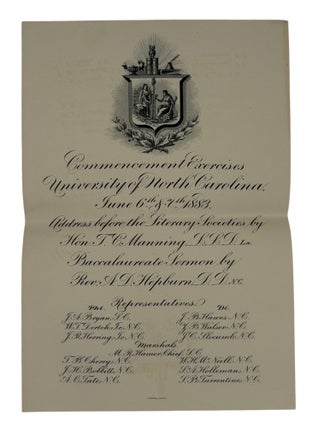 Commencement Exercises
University of North Carolina.
June 6th & 7th 1883.
Address before the Literary Societies by
Hon. T. C. Manning, L.L.D. La.
Baccalaureate Sermon by
Rev. A. D. Hepburn, D.D. N.C.
Representatives.
Phi. Di.
J. A. Bryan, S.C. J. B. Hawes, N.C.
W. T. Dortch Jr. N.C. Z. B. Walser, N.C.
J. R. Herring Jr. N.C. J. C. Slocumb, N.C.
Marshals
M. R. Hamer, Chief, S.C.
T. B. Cherry, N.C. W. H. McNeill, N.C.
J. H. Bobbitt, N.C. S. A. Holleman, N.C.
A. C. Tate, N.C. S. B. Turrentine, N.C.